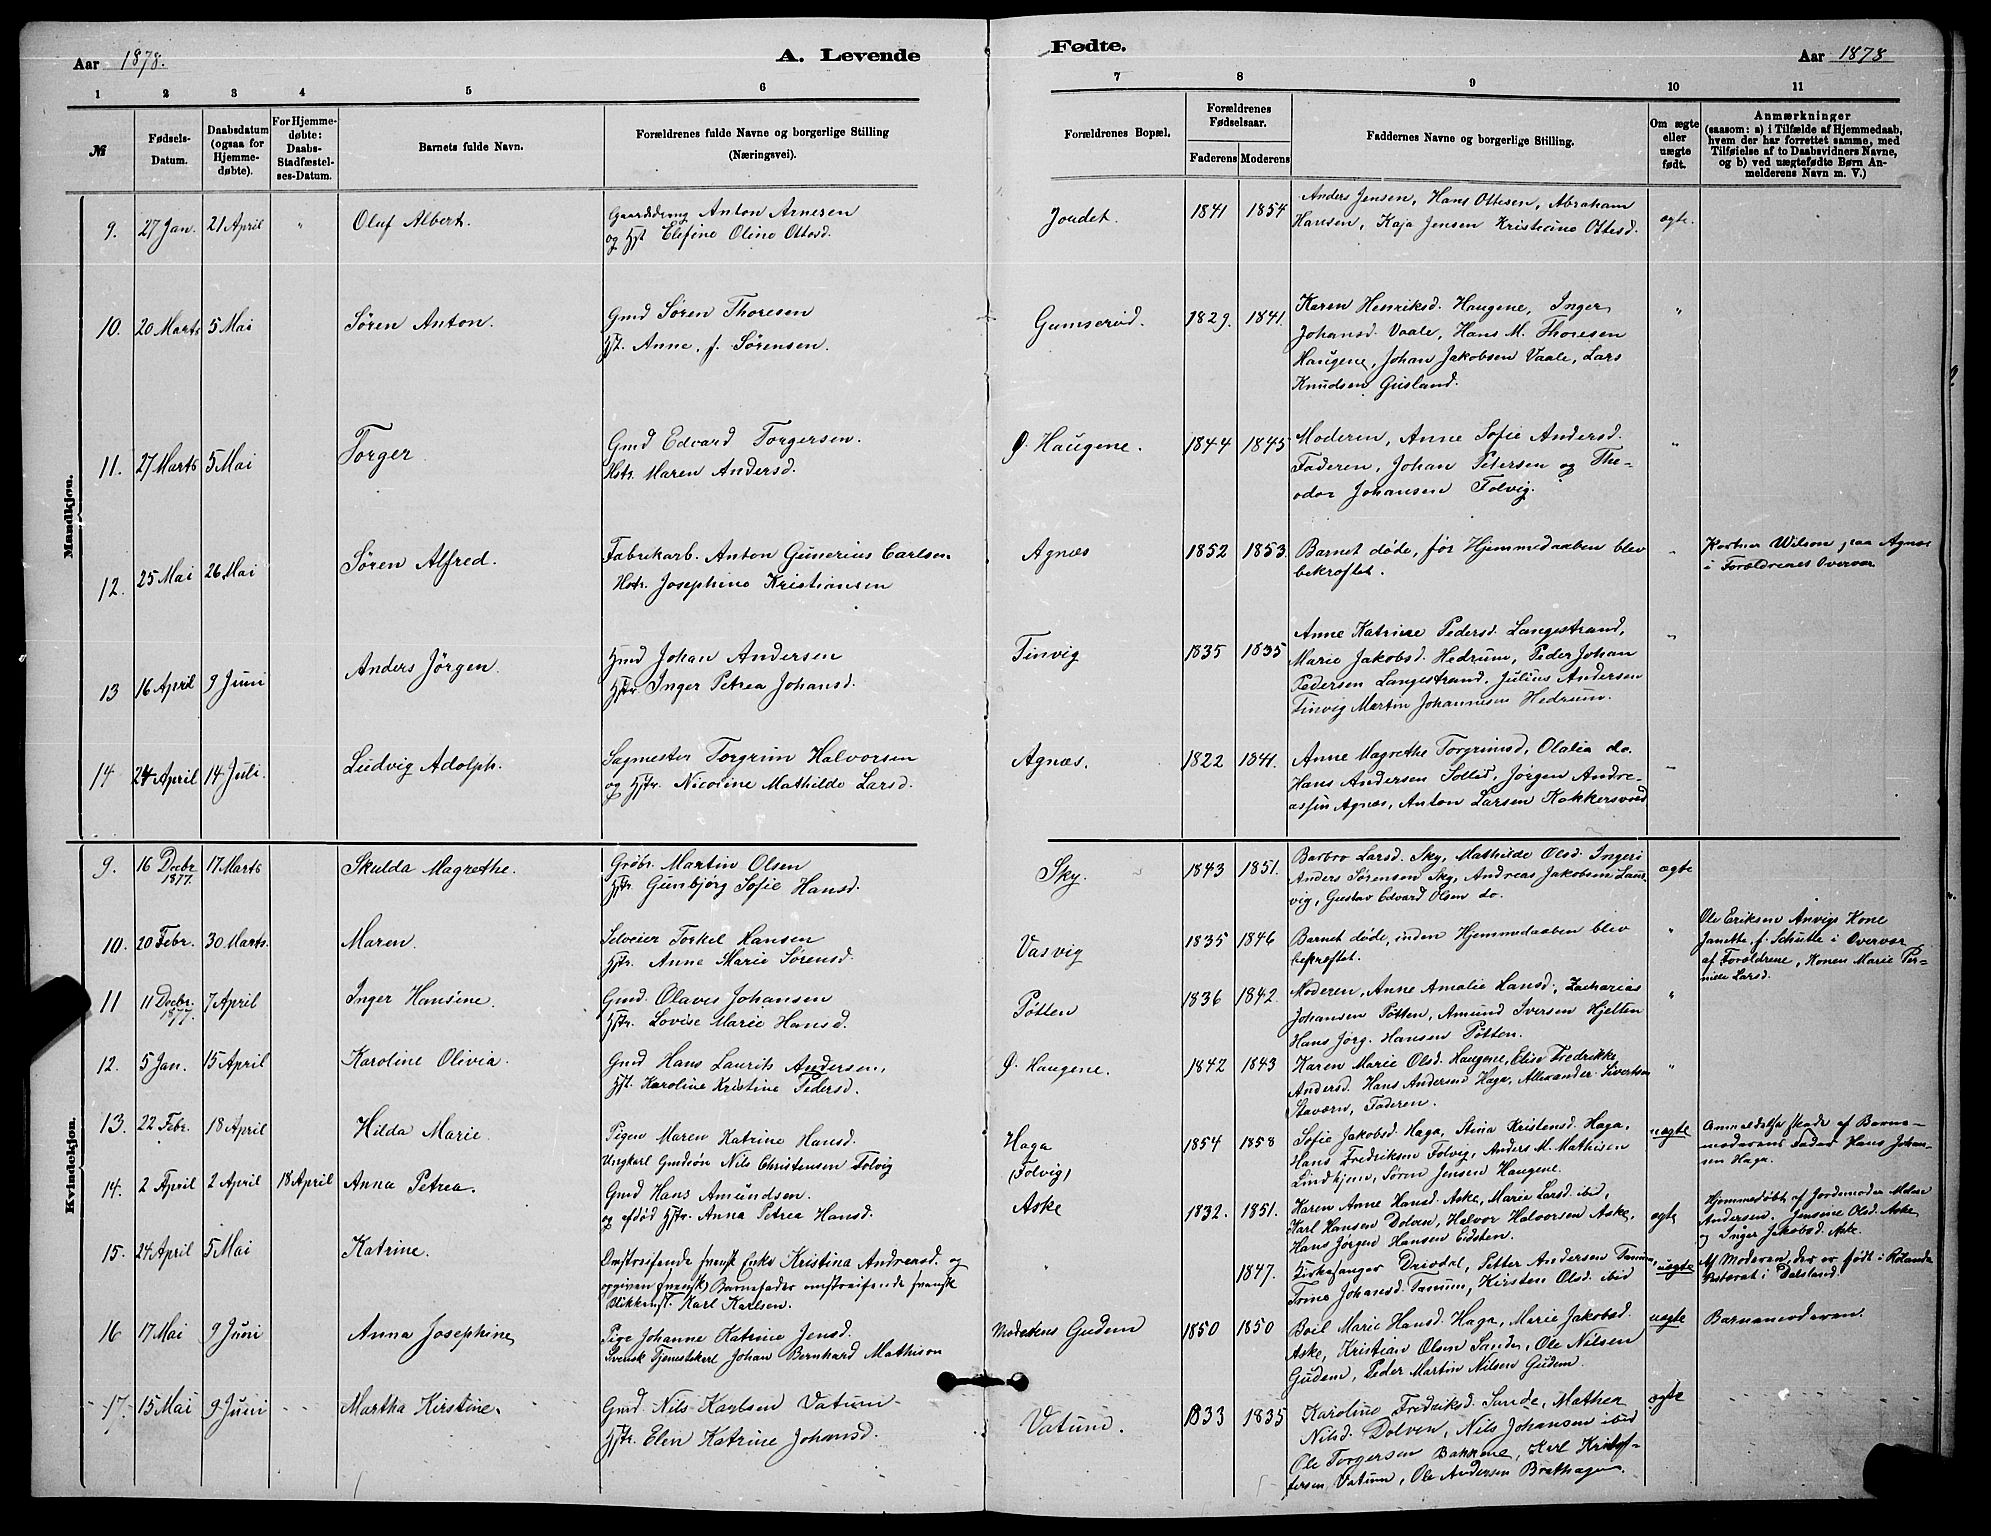 Aar 1878.
A. Levende
Fødte.
Aar 1878
1 2 3 4 5 6
7 8 9 10 11
№
Fødsels-
Datum.
Daabsdatum
(ogsaa for
Hjemme-
døbte).
For Hjemme-
døbte:
Daabs-
Stadfæstel-
ses-Datum.
Barnets fulde Navn.
Forældrenes fulde Navne og borgerlige Stilling
(Næringsvei).
Forældrenes Bopæl.
Forældrenes
Fødselsaar.
Faderens Moderens
Faddernes Navne og borgerlige Stilling.
Om ægte
eller
uægte
født.
Anmærkninger
(saasom: a) i Tilfælde af Hjemmedaab,
hvem der har forrettet samme, med
Tilføielse af to Daabsvidners Navne,
og b) ved uægtefødte Børn An-
melderens Navn m. V.)
Mandkjøn.
9. 27 Jan. 21 April " Oluf Albert.
Gaarddreng Anton Arnesen
og Hst Elefine Oline Ottesd.
Joudet. 1841 1854
Anders Jensen, Hans Ottesen, Abraham
Hansen, Kaja Jensen Kristiane Ottesd.
ægte.
10. 20 Marts 5 Mai Søren Anton.
Gmd Søren Thoresen
Hst. Anne, f. Sørensen.
Gumserød. 1829. 1841.
Karen Henriksd. Haugene, Inger
Johansd. Vaale, Hans M. Thoresen
Haugene, Johan Jakobsen Vaale, Lars
Knudsen Gusland.
"
11. 27 Marts 5 Mai Torger.
Gmd Edvard Torgersen.
Hstr. Maren Andersd.
Ø. Haugene. 1844 1845
Moderen, Anne Sofie Andersd.
Faderen, Johan Petersen og The-
odor Johansen Folvig.
"
12. 25 Mai 26 Mai Søren Alfred.
Fabrikarb. Anton Gunerius Carlsen
Hstr. Josephine Kristiansen
Agnæs 1852 1853.
Barnet døde, før Hjemmedaaben blev
bekræftet.
"
Wilson, paa Agnæs
i Forældrenes Overvær
13 16 April 9 Juni Anders Jörgen.
Hmd Johan Andersen
Hstr Inger Petrea Johansd.
Tinvig 1835 1835
Anne Katrine Pedersd. Langestrand,
Marie Jakobsd. Hedrum, Peder Johan
Pedersen Langestrand, Julius Andersen
Tinvig Martin Johannesen Hedrum.
"
14 24 April 14 Juli. Ludvig Adolph.
Sagmester Torgrim Halvorsen
og Hstr. Nicoline Mathilde Larsd.
Agnæs. 1822 1841.
Anne Magrethe Torgrimsd, Olalia do.
Hans Andersen Sollid, Jørgen Andre-
assen Agnæs, Anton Larsen Kokkersvold
"
Kvindekjøn.
9. 16 Decbr 1877. 17 Marts Skulda Magrethe.
Grdbr. Martin Olsen
Hstr. Gunbjørg Sofie Hansd.
Sky. 1843 1851.
Barbro Larsd. Sky, Mathilde Olsd. Ingeri
Anders Sørensen Sky, Andreas Jakobsen Laur-
vig, Gustav Edvard Olsen do.
ægte
10. 20 Febr. 30 Marts. Maren.
Selveier Torkel Hansen
Hstr. Anne Marie Sørensd.
Vasvig 1835 1846
Barnet døde, inden Hjemmedaaben blev
bekræftet.
"
Ole Eriksen Anvigs Kone
Janette, f. Schutle i Overvær
af Forældrene, Konen Marie Per-
nille Larsd.
11 11 Decbr. 1877. 7 April Inger Hansine.
Gmd. Olaves Johansen
Hstr. Lovise Marie Hansd.
Pøtten 1836 1842.
Moderen, Anne Amalie Hansd., Zacharias
Johansen Pøtten, Amund Iversen Hjelten
Hans Jørg. Hansen Pøtten.
"
12. 5 Jan. 15 April Karoline Olivia.
Gmd Hans Laurits Andersen,
Hst. Karoline Kristine Pedersd.
Ø. Haugene. 1842 1843
Karen Marie Olsd. Haugene, Elise Fredrikke
Andersd. Hans Andersen Haga, Allexander Sivertsen
Stavern, Faderen.
"
13. 22 Febr. 18 April Hilda Marie.
Pigen Maren Katrine Hansd.
Ungkarl Gmdsøn Nils Christensen Folvig
Haga
(Folvig) 1854 1858
Sofie Jakobsd. Haga, Stina Kristensd. Haga,
Hans Fredriksen Folvig, Anders M. Mathisen
Lindhjem, Søren Jensen Haugene.
uægte
Anmeldelse skede af Barne-
moderens Fader Hans Johan-
sen Haga.
14. 2 April 2 April 18 April Anna Petrea.
Gmd Hans Amundsen.
og afdød Hstr. Anna Petrea Hansd.
Aske 1832. 1851.
Karen Anne Hansd. Aske, Marie Larsd. ibid,
Karl Hansen Dolven, Halvor Halvorsen Aske,
Hans Jörgen Hansen Eidsten.
ægte
Hjemmedøbt af Jordemoder
Andersen. Jensine Olsd. Aske
og Inger Jakobsd. Aske
15. 24 April 5 Mai Katrine.
Omstreifende svensk Enke Kristina Andreasd. og
opgiven (svensk) Barnefader omstreifende svensk
Blikkensl. Karl Karlsen.
" 1847.
Kirkesanger Driodal, Petter Andersen Tanum,
Trine Johansd. Tanum, Kirsten Olsd. ibid
uægte
Af Moderen, der er født i Rölanda
Pastorat i Dalsland.
16 17 Mai 9 Juni Anna Josephine
Pige Johanne Katrine Jensd.
Svensk Tjenestkarl Johan Bernhard Mathison
Moderens Gudem 1850 1850
Boil Marie Hansd. Haga, Marie Jakobsd.
Aske, Kristian Olsen Sande, Ole Nilsen
Gudem, Peder Martin Nilsen Gudem.
uægte
Barnemoderen.
17. 15 Mai 9 Juni Martha Kirstine.
Gmd. Nils Karlsen Vatum
Hstr. Elen Katrine Johansd.
Vatum. 1833 1835
Karoline Fredriksd. Sande, Mathea
Nilsd. Dolven, Nils Johansen ibid
Ole Torgersen Bakkene, Karl Kristof-
fersen Vatum, Ole Andersen Brathagen.
ægte